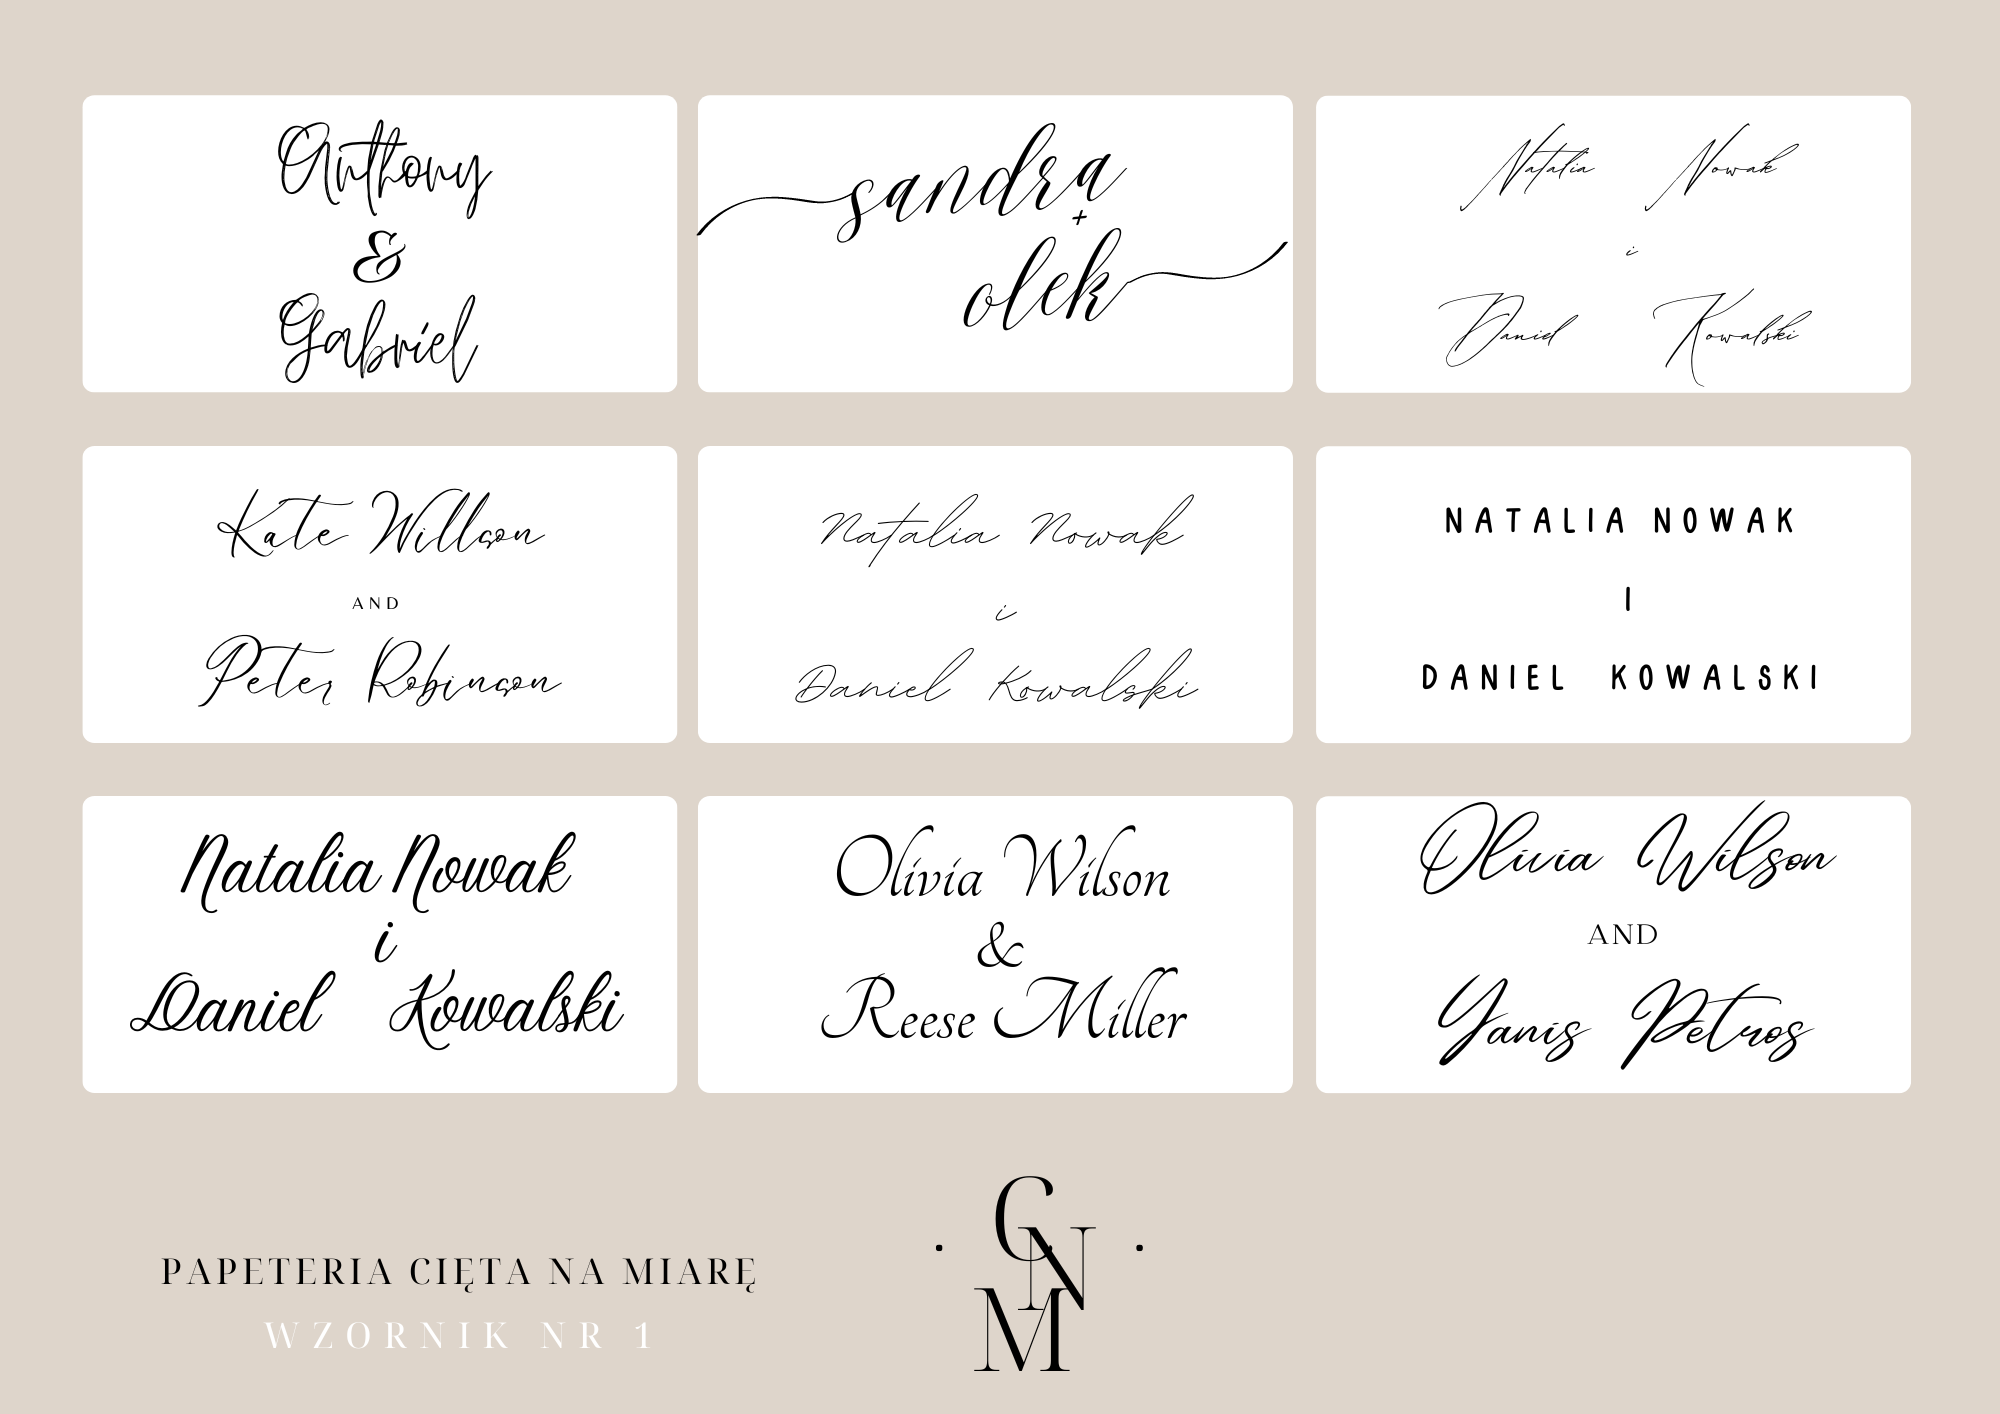 Anthony
&
Gabriel
sandra
+
olek
Natalia Nowak
i
Daniel Kowalski
Kate Willson
AND
Peter Robinson
Natalia Nowak
i
Daniel Kowalski
NATALIA NOWAK
I
DANIEL KOWALSKI
Natalia Nowak
i
Daniel Kowalski
Olivia Wilson
&
Reese Miller
Olivia Wilson
AND
Yanis Petros
PAPETERIA CIĘTA NA MIARĘ
WZORNIK NR 1
C
N
M